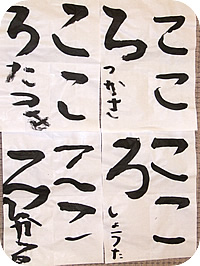 ここ
ろ
つかさ
ここ
ろ
たつき
ここ
ろ
しょうた
ここ
ろ
ひかる